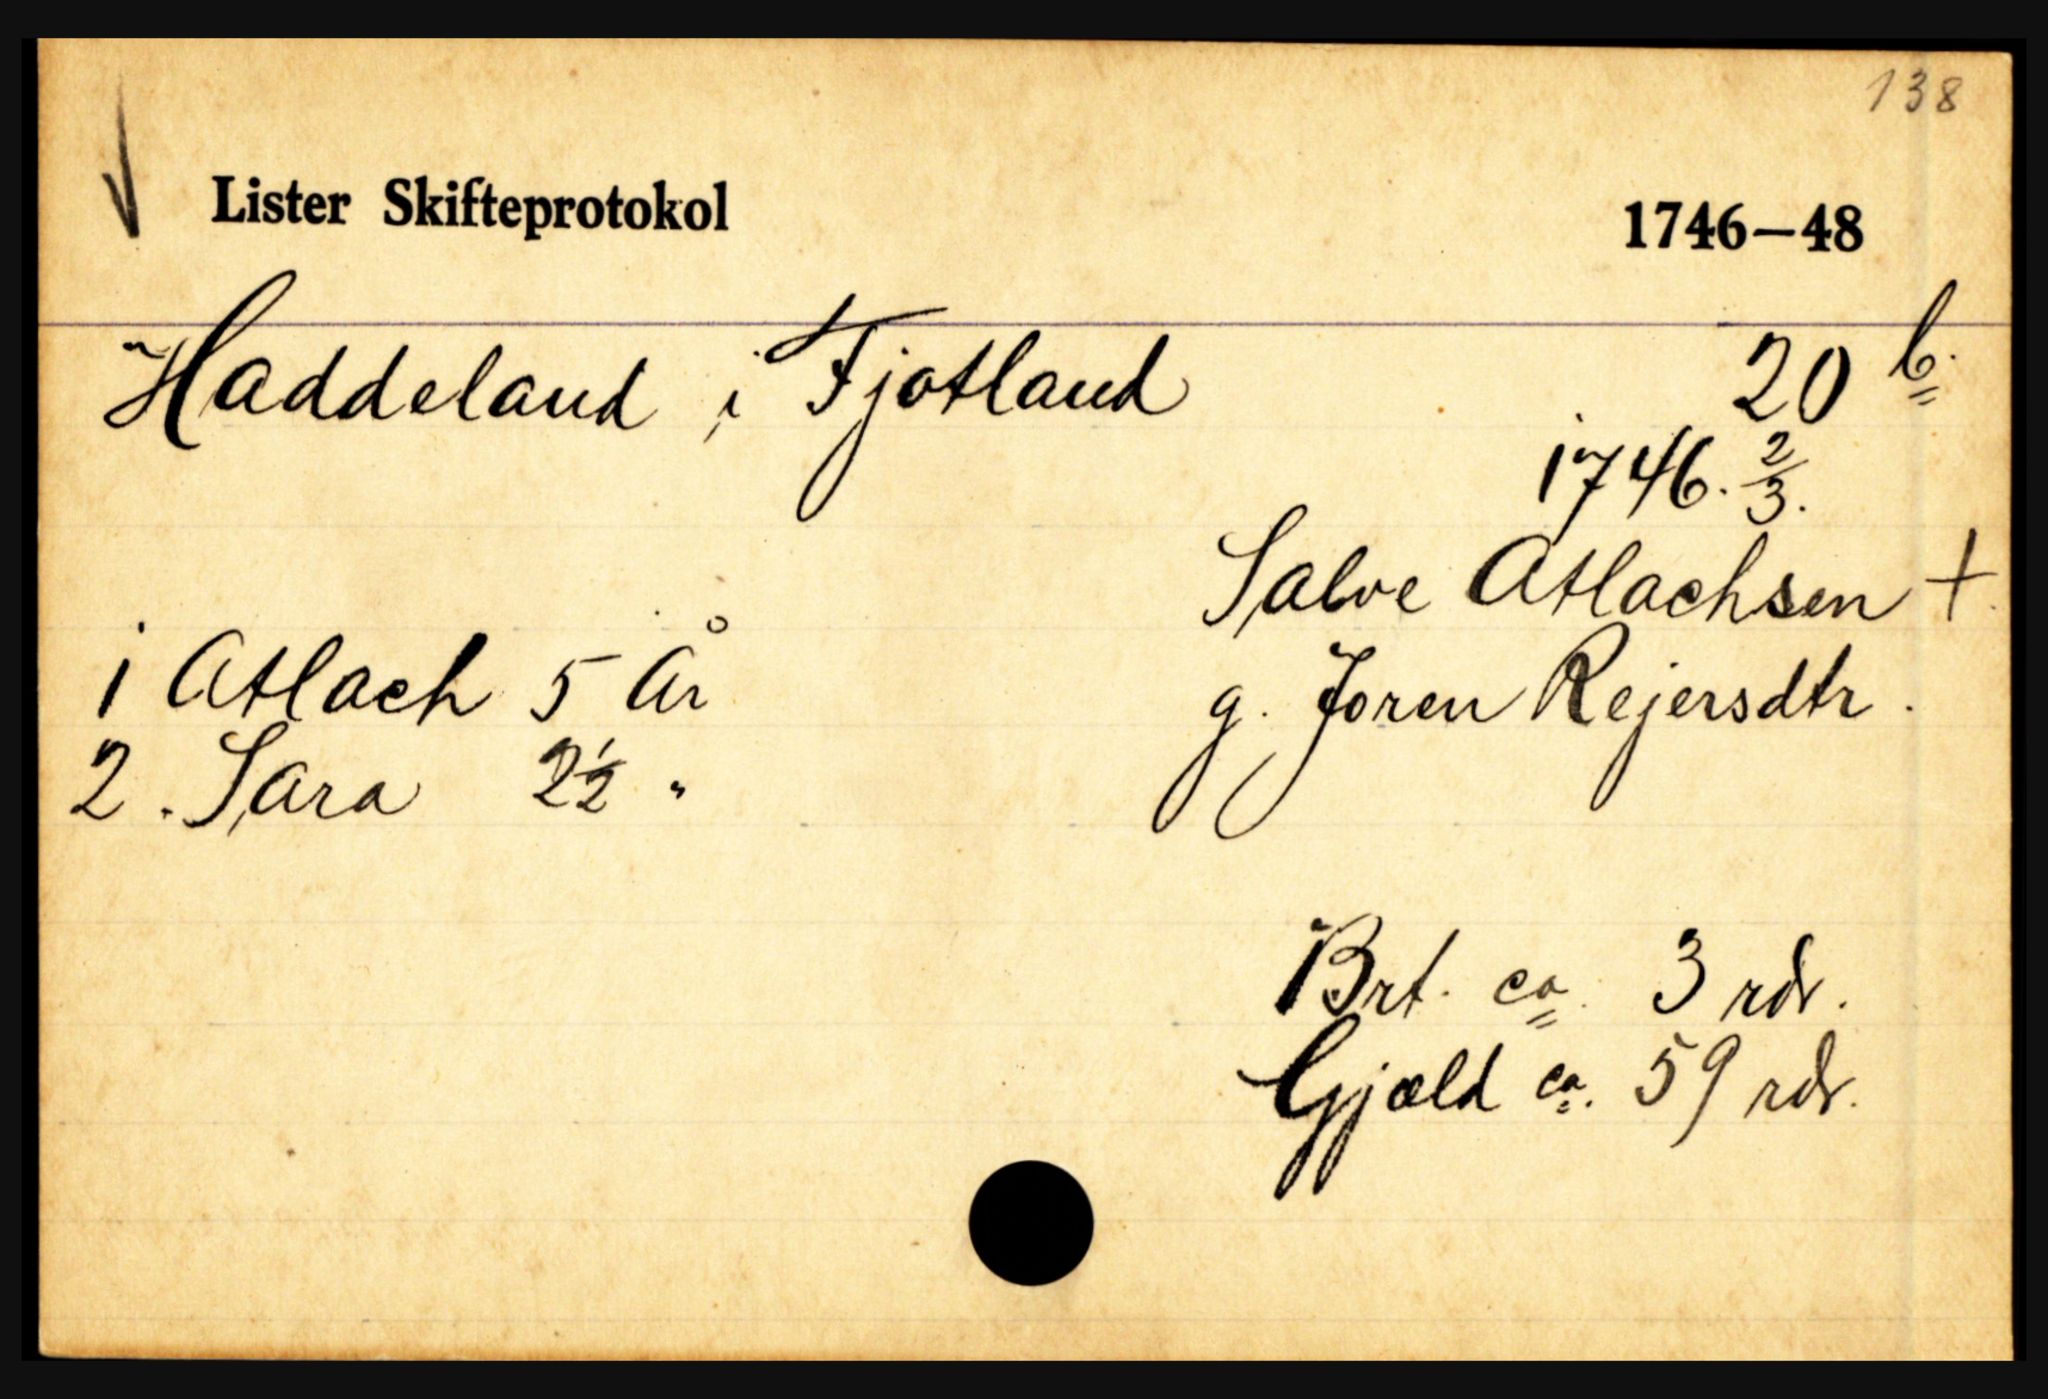 138
Lister Skifteprotokol 1746—48
Haddeland i Fjotland 20 b.
1746. 2/3.
Salve Atlachsen +.
1 Atlach 5 År
g. Joren Rejersdtr.
2. Sara 2½ "
Brt. ca. 3 rdr.
Gjæld ca. 59 rdr.